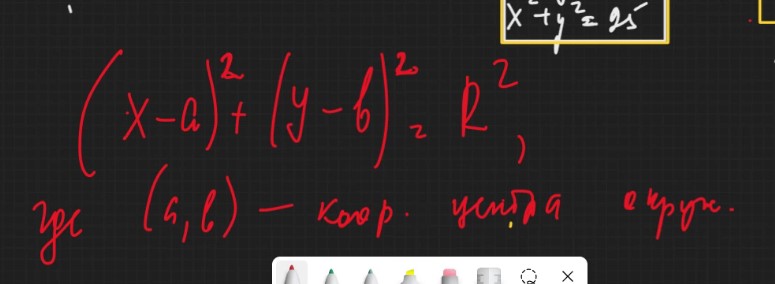 x²+y²=25
(x-a)²+(y-b)²=R²,
где (a,b) – коор. центра окруж.